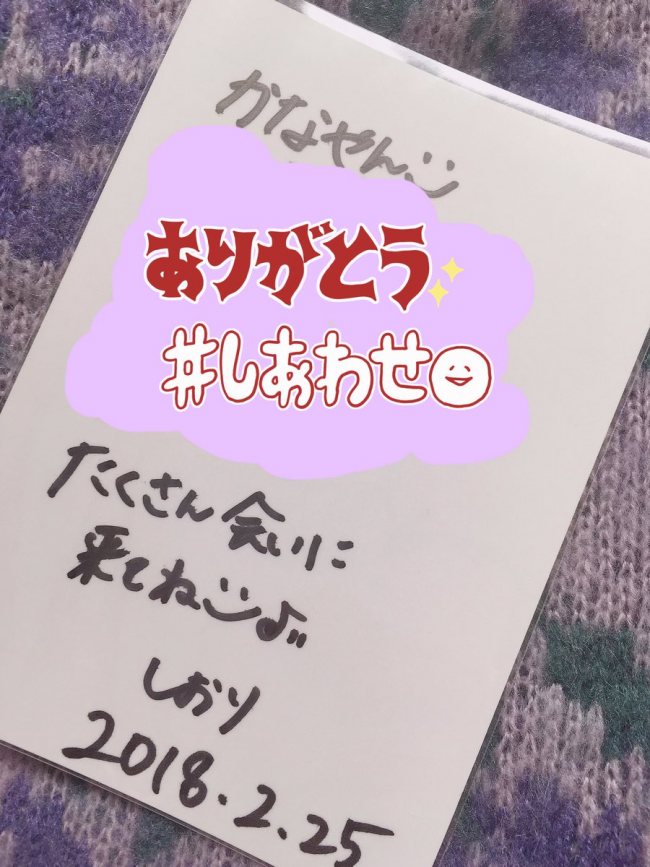 かなやん
ありがとう
#しあわせ
たくさん会いに
来てね♪
しおり
2018.2.25